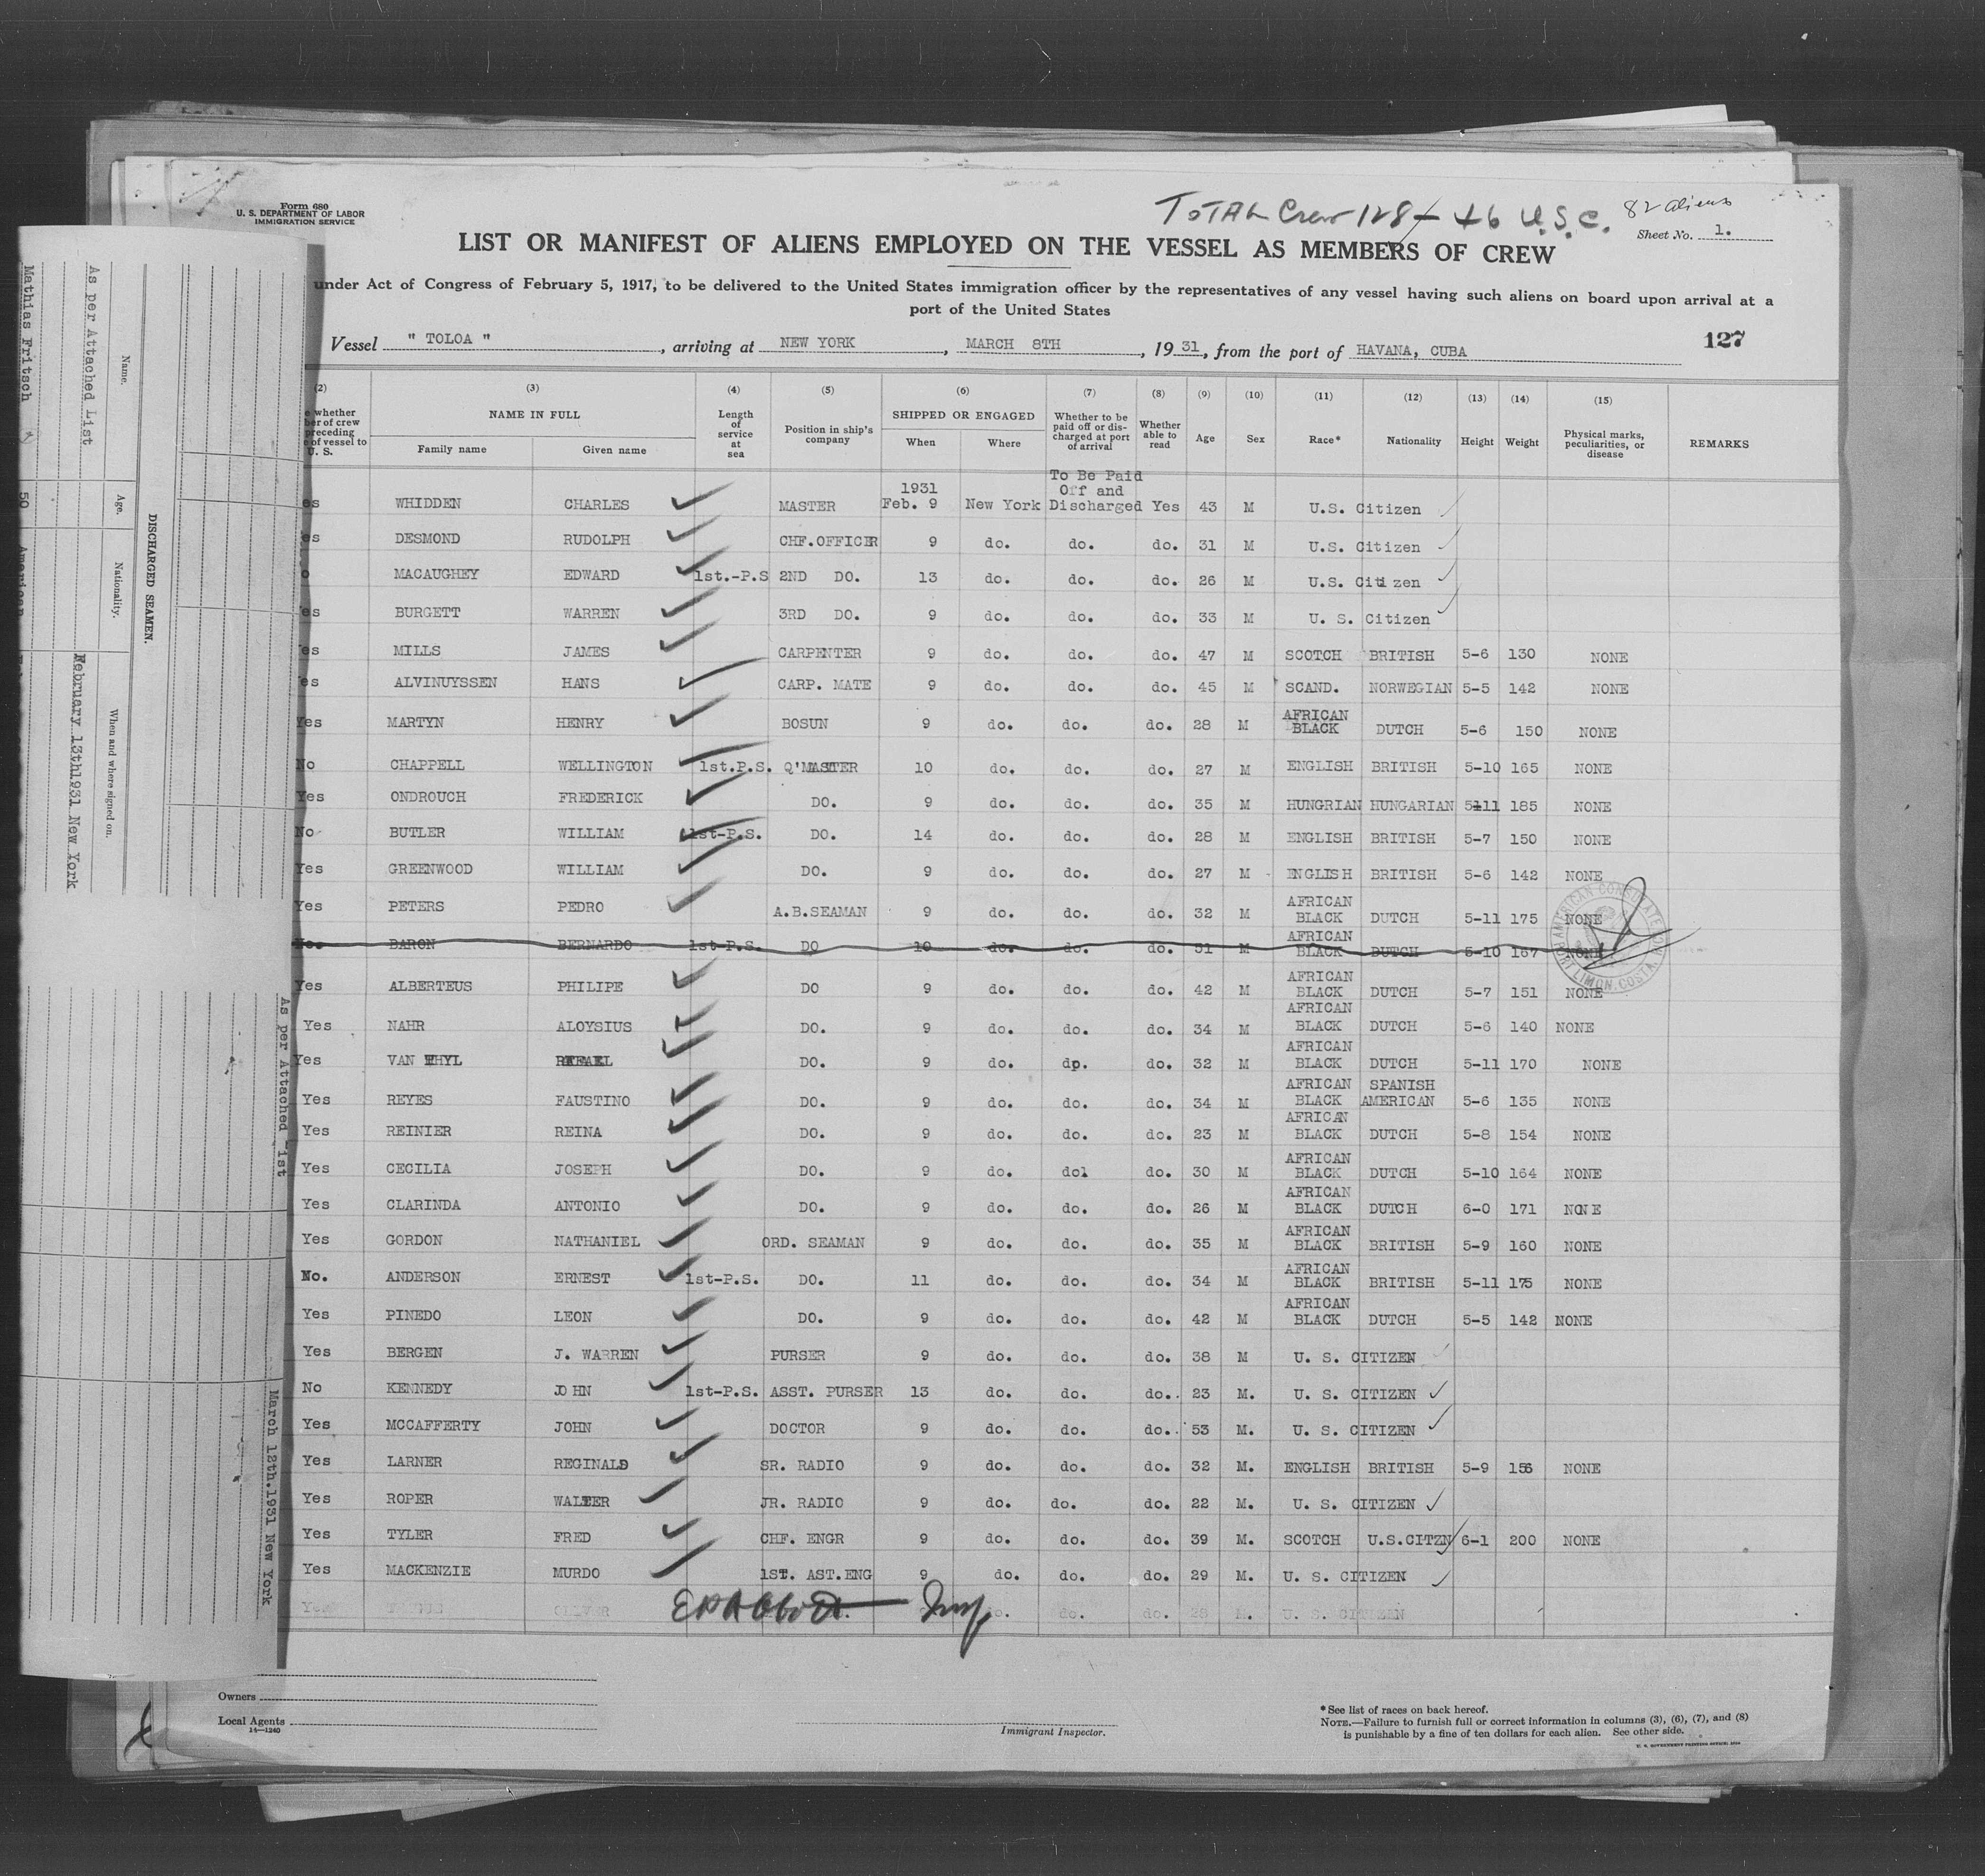 Form 680
U. S. DEPARTMENT OF LABOR
IMMIGRATION SERVICE
TOTAL Crew 128 46 U.S.C. 82 aliens
Sheet No. 1.
LIST OR MANIFEST OF ALIENS EMPLOYED ON THE VESSEL AS MEMBERS OF CREW
under Act of Congress of February 5, 1917, to be delivered to the United States immigration officer by the representatives of any vessel having such aliens on board upon arrival at a
port of the United States
127
Vessel " TOLOA ", arriving at NEW YORK, MARCH 8TH, 1931, from the port of HAVANA, CUBA
(2) (3) (4) (5) (6) (7) (8) (9) (10) (11) (12) (13) (14) (15)
whether
er of crew
preceding
of vessel to
U. S.
NAME IN FULL
Family name Given name
Length
of
service
at
sea
Position in ship's
company
SHIPPED OR ENGAGED
When Where
Whether to be
paid off or dis-
charged at port
of arrival
Whether
able to
read
Age Sex Race* Nationality Height Weight
Physical marks,
peculiarities, or
disease
REMARKS
To Be Paid
1931 Off and
es WHIDDEN CHARLES MASTER Feb. 9 New York Discharged Yes 43 M U.S. Citizen
es DESMOND RUDOLPH CHF.OFFICER 9 do. do. do. 31 M U.S. Citizen
o MACAUGHEY EDWARD 1st.-P.S 2ND DO. 13 do. do. do. 26 M U.S. Citizen
es BURGETT WARREN 3RD DO. 9 do. do. do. 33 M U. S. Citizen
es MILLS JAMES CARPENTER 9 do. do. do. 47 M SCOTCH BRITISH 5-6 130 NONE
es ALVINUYSSEN HANS CARP. MATE 9 do. do. do. 45 M SCAND. NORWEGIAN 5-5 142 NONE
Yes MARTYN HENRY BOSUN 9 do. do. do. 28 M AFRICAN BLACK DUTCH 5-6 150 NONE
No CHAPPELL WELLINGTON 1st.P.S. Q'MASTER 10 do. do. do. 27 M ENGLISH BRITISH 5-10 165 NONE
Yes ONDROUCH FREDERICK DO. 9 do. do. do. 35 M HUNGRIAN HUNGARIAN 5-11 185 NONE
No BUTLER WILLIAM 1st-P.S. DO. 14 do. do. do. 28 M ENGLISH BRITISH 5-7 150 NONE
Yes GREENWOOD WILLIAM DO. 9 do. do. do. 27 M ENGLISH BRITISH 5-6 142 NONE
Yes PETERS PEDRO A.B.SEAMAN 9 do. do. do. 32 M AFRICAN BLACK DUTCH 5-11 175 NONE
No. BARON BERNARDO 1st-P.S. DO 10 do. do. do. 31 M AFRICAN BLACK DUTCH 5-10 167 NONE
AMERICAN CONSULATE PORT LIMON, COSTA
Yes ALBERTEUS PHILIPE DO 9 do. do. do. 42 M AFRICAN BLACK DUTCH 5-7 151 NONE
Yes NAHR ALOYSIUS DO. 9 do. do. do. 34 M AFRICAN BLACK DUTCH 5-6 140 NONE
Yes VAN DO. 9 do. dp. do. 32 M AFRICAN BLACK DUTCH 5-11 170 NONE
Yes REYES FAUSTINO DO. 9 do. do. do. 34 M AFRICAN BLACK SPANISH AMERICAN 5-6 135 NONE
Yes REINIER REINA DO. 9 do. do. do. 23 M AFRICAN BLACK DUTCH 5-8 154 NONE
Yes CECILIA JOSEPH DO. 9 do. dol do. 30 M AFRICAN BLACK DUTCH 5-10 164 NONE
Yes CLARINDA ANTONIO DO. 9 do. do. do. 26 M AFRICAN BLACK DUTCH 6-0 171 NONE
Yes GORDON NATHANIEL ORD. SEAMAN 9 do. do. do. 35 M AFRICAN BLACK BRITISH 5-9 160 NONE
No. ANDERSON ERNEST 1st-P.S. DO. 11 do. do. do. 34 M AFRICAN BLACK BRITISH 5-11 175 NONE
Yes PINEDO LEON DO. 9 do. do. do. 42 M AFRICAN BLACK DUTCH 5-5 142 NONE
Yes BERGEN J. WARREN PURSER 9 do. do. do. 38 M U. S. CITIZEN
No KENNEDY JOHN 1st-P.S. ASST. PURSER 13 do. do. do. 23 M. U. S. CITIZEN
Yes MCCAFFERTY JOHN DOCTOR 9 do. do. do. 53 M. U. S. CITIZEN
Yes LARNER REGINALD SR. RADIO 9 do. do. do. 32 M. ENGLISH BRITISH 5-9 156 NONE
Yes ROPER WALTER JR. RADIO 9 do. do. do. 22 M. U. S. CITIZEN
Yes TYLER FRED CHF. ENGR 9 do. do. do. 39 M. SCOTCH U.S.CITZN 6-1 200 NONE
Yes MACKENZIE MURDO 1ST. AST.ENG 9 do. do. do. 29 M. U. S. CITIZEN
Yes OLIVER do. do. do. 28 M. U. S. CITIZEN
Owners
Local Agents
14—1240
Immigrant Inspector.
* See list of races on back hereof.
NOTE.—Failure to furnish full or correct information in columns (3), (6), (7), and (8)
is punishable by a fine of ten dollars for each alien. See other side.
U. S. GOVERNMENT PRINTING OFFICE:
DISCHARGED SEAMEN.
Name. Age. Nationality. When and where signed on.
As per Attached List February 13th1931 New York
Mathias Fritsch 50 American
As per Attached List March 12th.1931 New York